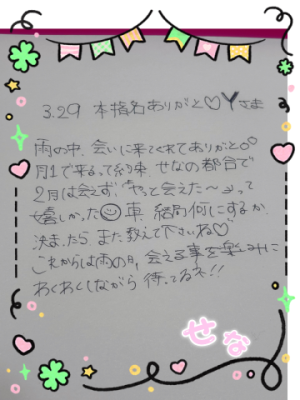 3.29 本指名ありがと♡Yさま
雨の中、会いに来てくれてありがと。
月1で来るって約束、せなの都合で
2月は会えず、やっと会えた〜って
嬉しかった☺車、結局何にするか
決まったら、また教えて下さいね♡
これからは雨の日、会える事を楽しみに
わくわくしながら待ってるネ!!
せな